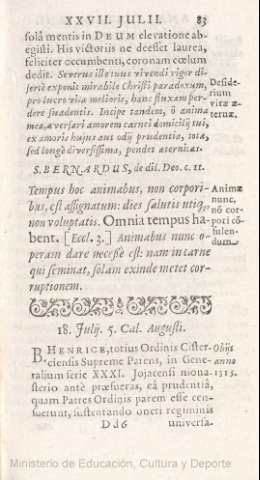 XXVII. JULII. 83
solâ mentis in DEUM elevatione ab-
egisti. His victoriis ne deesset laurea,
feliciter occumbenti, coronam cœlum
dedit. Severus ille tuus vivendi rigor di-
sertè exponit mirabile Christi paradoxum,
pro lucro vitæ melioris, hanc fluxam per-
dere suadentis. Incipe tandem, ô anima
mea, aversari amorem carnei domicilij tui,
ex amoris hujus aut odij prudentia, tota,
sed longè diversissima, pendet æternitas.
Deside-
rium
vitæ æ-
ternæ.
S. BERNARDUS, de dil. Deo. c. 11.
Tempus hoc animabus, non corpori-
bus, est assignatum: dies salutis utiq,
non voluptatis. Omnia tempus ha-
bent. [Eccl. 3.] Animabus nunc o-
peram dare necesse est: nam in carne
qui seminat, solam exinde metet cor-
ruptionem.
Animæ
nunc,
nō cor-
pori cō-
sulen-
dum.
18. Julij. 5. Cal. Augusti.
B. HENRICE, totius Ordinis Cister-
ciensis Supreme Parens, in Gene-
ralium serie XXXI. Jojacensi mona-
sterio antè præfueras, eâ prudentiâ,
quam Patres Ordinis parem esse cen-
suerunt, sustentando oneri regiminis
Obijt
anno
1315.
Dd6 universa-
Ministerio de Educación, Cultura y Deporte